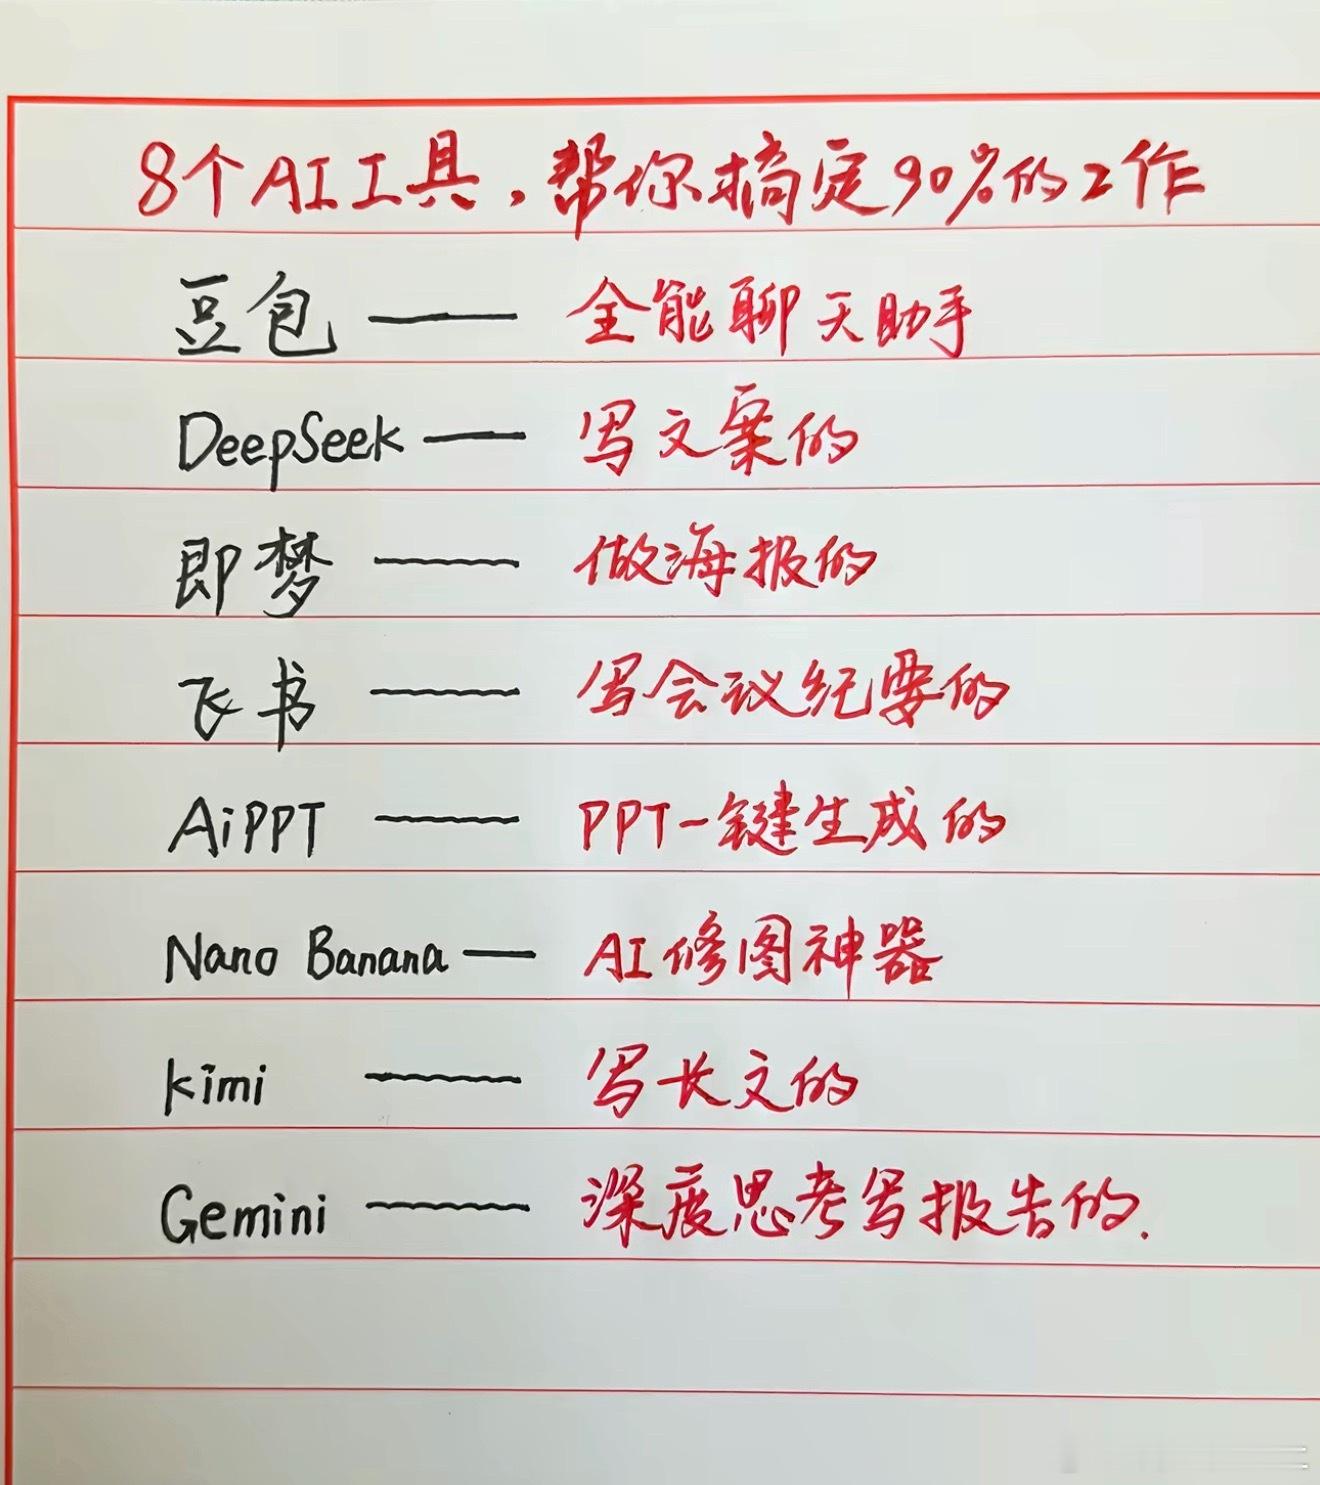 8个AI工具,帮你搞定90%的工作
豆包——全能聊天助手
DeepSeek——写文案的
即梦——做海报的
飞书——写会议纪要的
AiPPT——PPT一键生成的
Nano Banana——AI修图神器
kimi——写长文的
Gemini——深度思考写报告的.